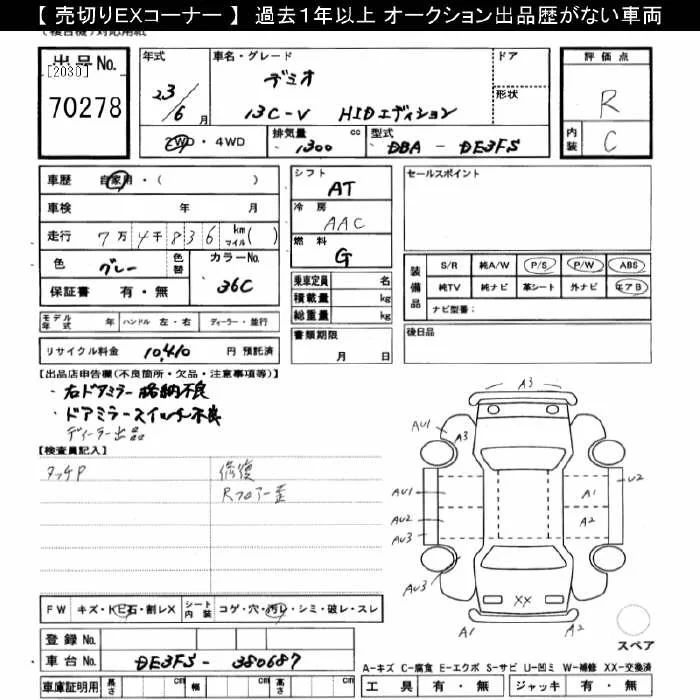 【 売切りEXコーナー 】 過去1年以上 オークション出品歴がない車両
出品No. [2030] 70278
年式 23/6月
車名・グレード デミオ 13C-V HIDエディション
ドア
形状
評価点 R
内装 C
2WD・4WD 排気量 1300 cc 型式 DBA - DE3FS
車歴 自家用・( )
車検 年 月
走行 7万4千836 km マイル( )
色 グレー 色替 カラーNo. 36C
保証書 有・無
シフト AT
冷房 AAC
燃料 G
乗車定員 名
積載量 kg
総重量 kg
セールスポイント
装備品 S/R 純A/W P/S P/W ABS
純TV 純ナビ 革シート 外ナビ エアB
ナビ型番:
モデル年式 年 ハンドル 左・右 ディーラー・並行
リサイクル料金 10,410 円 預託済
書類期限 月 日
後日品
【出品店申告欄(不良箇所・欠品・注意事項等)】
・右ドアミラー格納不良
・ドアミラースイッチ不良
ディーラー出品
【検査員記入】
タッチP 修復
Rフロアー歪
A3
AU1 A3
AU1 A1 U2
AU2 A2
AU3
AU3
XX
A1 A2
スペア
FW キズ・トビ石・割レX シート内装 コゲ・穴・汚レ・シミ・破レ・スレ
登録No.
車台No. DE3FS - 380687
車庫証明用 長さ cm 幅 cm 高さ cm
A-キズ C-腐食 E-エクボ S-サビ U-凹ミ W-補修 XX-交換済
工具 有・無 ジャッキ 有・無